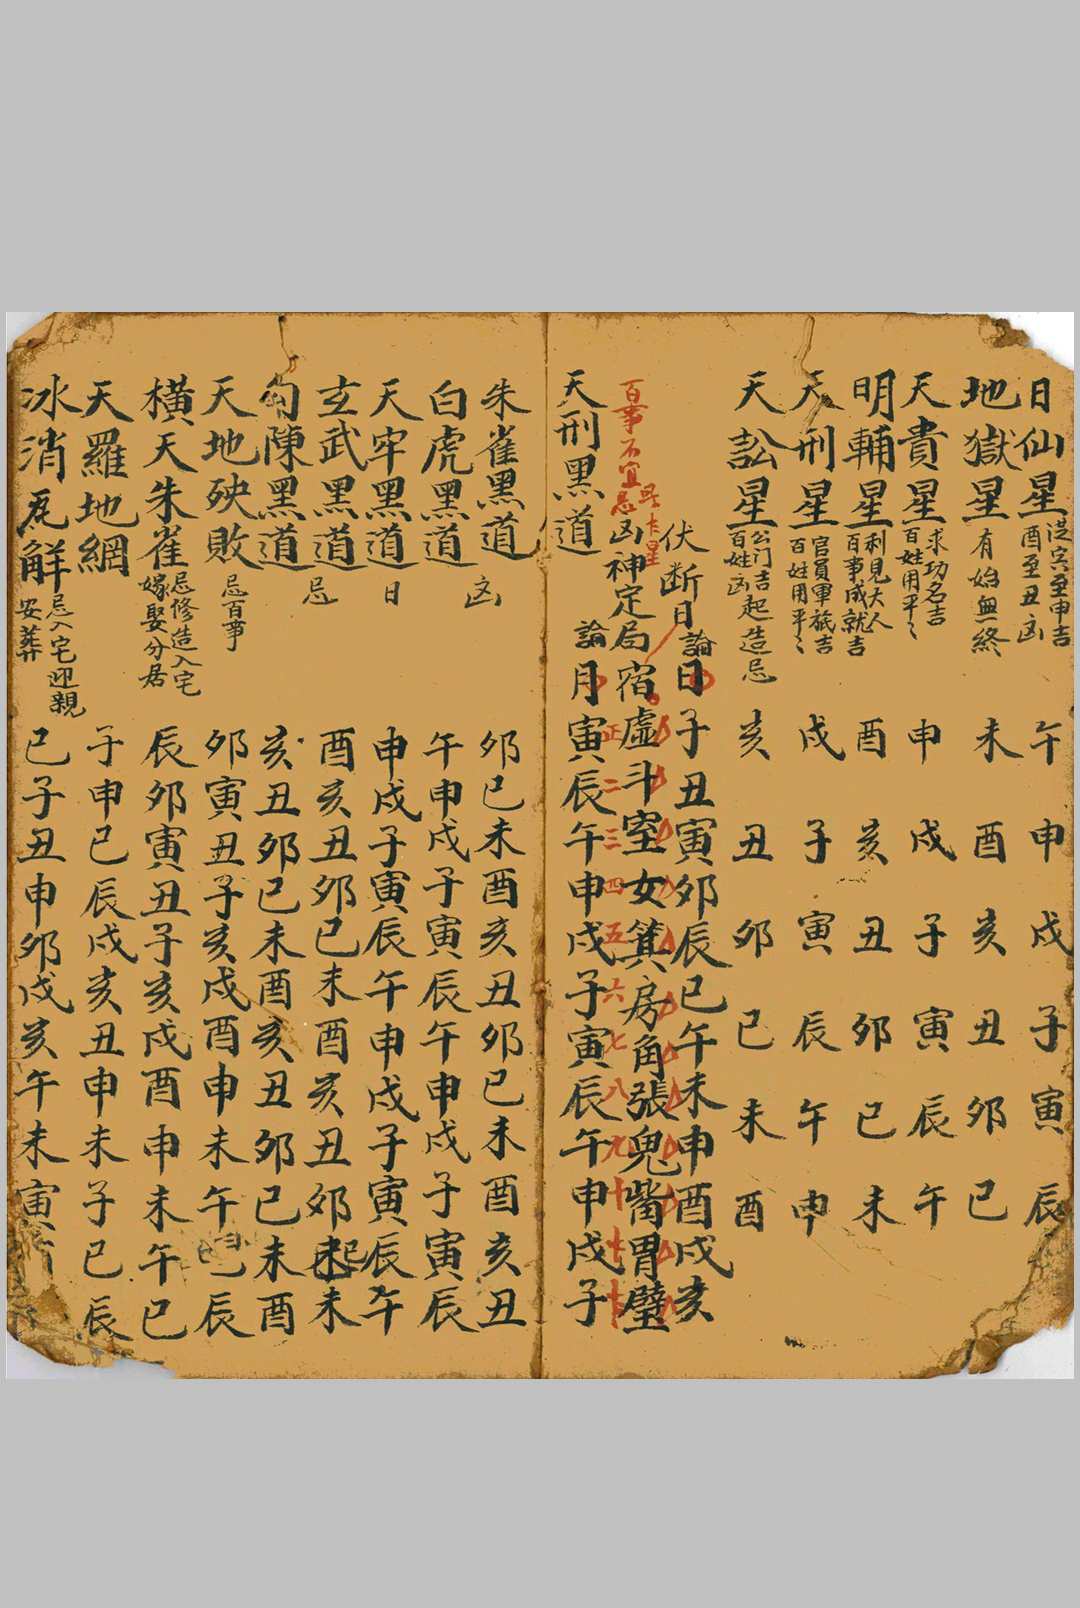 日仙星 從寅至申吉 酉至丑凶 午 申 戌 子 寅 辰
地獄星 有始無終 未 酉 亥 丑 卯 巳
天貴星 求功名吉 百姓用平〻 申 戌 子 寅 辰 午
明輔星 利見大人 百事成就吉 酉 亥 丑 卯 巳 未
天刑星 官員軍旅吉 百姓用平〻 戌 子 寅 辰 午 申
天訟星 公门吉 百姓凶 起造忌 亥 丑 卯 巳 未 酉
伏断日 論日 子丑寅卯辰巳午未申酉戌亥
百事不宜忌
凶神定局 宿 虛斗室女箕房角張鬼觜胃壁
正二三四五六七八九十
天刑黑道 論月 寅辰午申戌子寅辰午申戌子
朱雀黑道 凶 卯巳未酉亥丑卯巳未酉亥丑
白虎黑道 午申戌子寅辰午申戌子寅辰
天牢黑道 日 申戌子寅辰午申戌子寅辰午
玄武黑道 忌 酉亥丑卯巳未酉亥丑卯未
勾陳黑道 亥丑卯巳未酉亥丑卯巳未酉
天地殃敗 忌百事 卯寅丑子亥戌酉申未午巳辰
橫天朱雀 忌修造入宅 嫁娶分居 辰卯寅丑子亥戌酉申未午巳
天羅地網 子申巳辰戌亥丑申未子巳辰
冰消瓦解 忌入宅迎親 安葬 巳子丑申卯戌亥午未寅